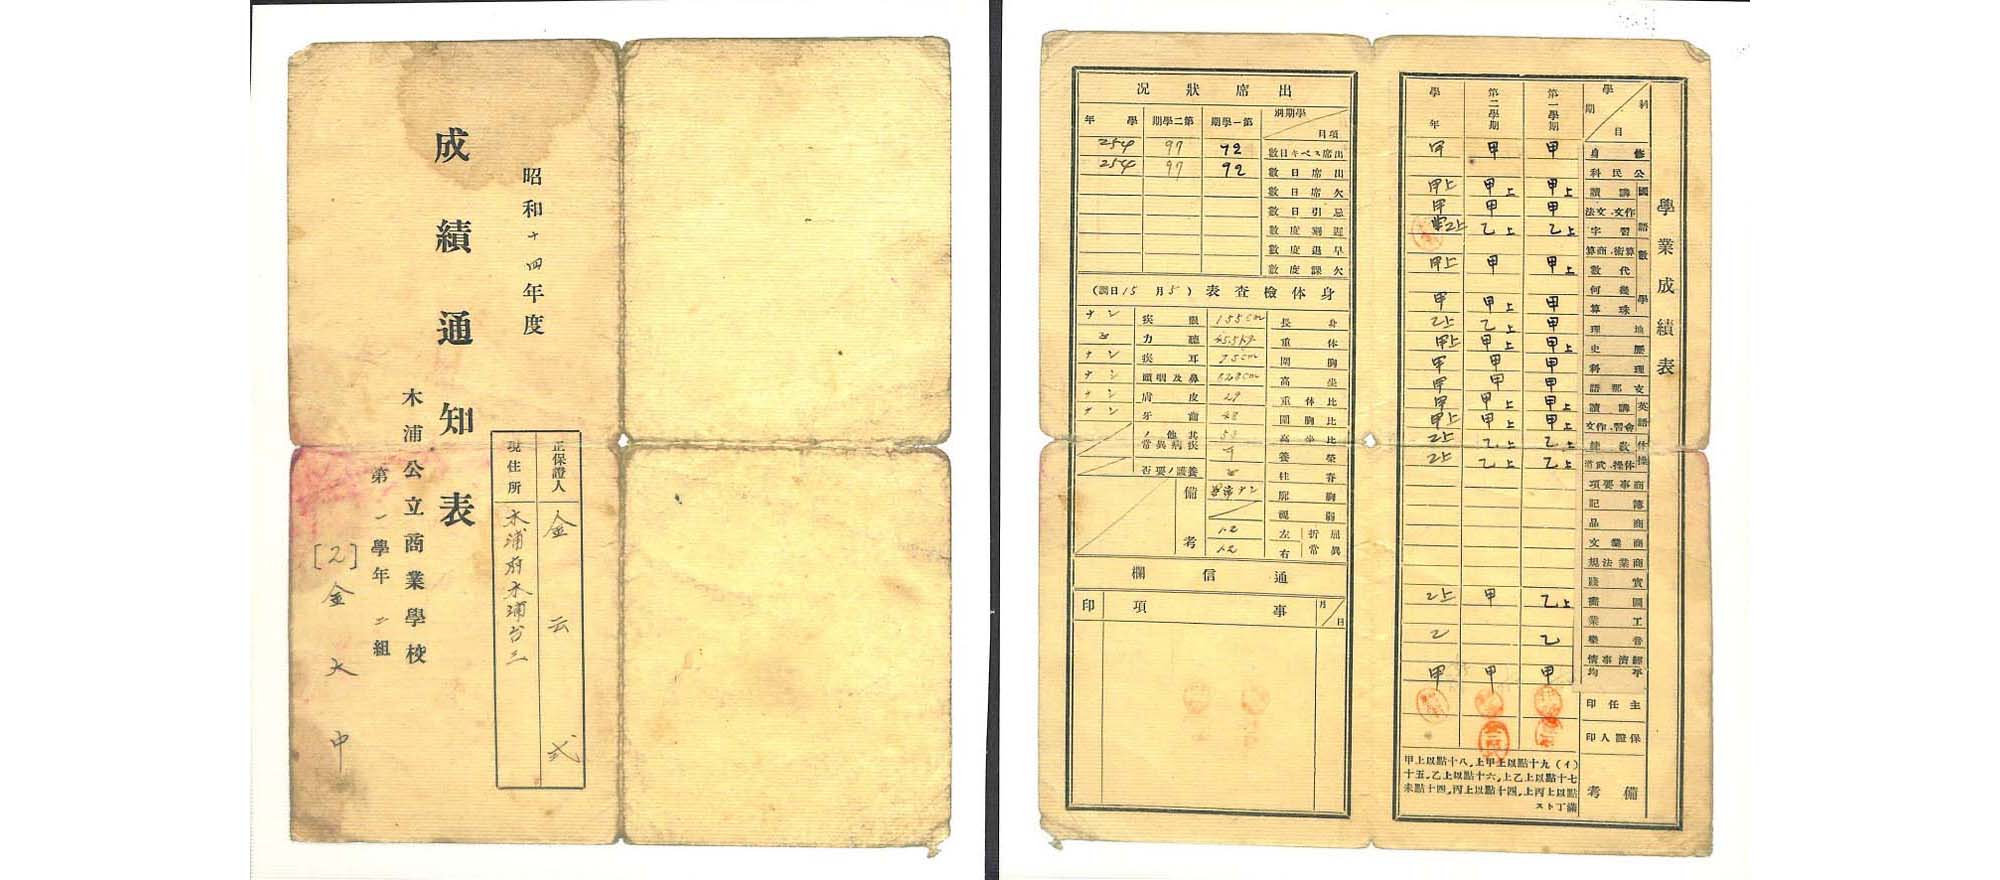 昭和十四年度
成績通知表
木浦公立商業學校
第一學年二組
[2]金大中
正保證人 金云式
現住所 木浦府木浦台三
學業成績表
科目 學期 第一學期 第二學期 學年
修身 甲 甲 甲
公民科
國語 講讀 甲上 甲上 甲上
作文、文法 甲 甲 甲
習字 乙上 乙上 乙上
數學 算術、商算 甲上 甲 甲上
代數
幾何
珠算 甲 甲上 甲
地理 甲 乙上 乙上
歷史 甲上 甲上 甲上
理科 甲 甲 甲
支那語 甲 甲 甲
英語 講讀 甲上 甲上 甲
會習、作文 甲上 甲上 甲上
体操 敎練 乙上 乙上 乙上
体操、武道 乙上 乙上 乙上
商事要項
簿記
商品
商業文
商業法規
實踐
圖畵 乙上 甲 乙上
工業
音樂 乙 乙
經濟事情
平均 甲 甲 甲
主任印
保證人印
備考
(イ)九十點以上甲上、八十點以上甲
七十點以上乙上、六十點以上乙、五十
點以上丙上、四十點以上丙、四十點未
滿丁トス
出席狀况
學期別 項目 第一學期 第二學期 學年
出席スベキ日數 92 97 254
出席日數 92 97 254
欠席日數
忌引日數
遲刻度數
早退度數
欠課度數
身体檢査表 (5月15日調)
身長 155cm 眼疾 ナシ
体重 45.5kg 聽力
胸圍 75cm 耳疾 ナシ
坐高 82.8cm 鼻及咽頭 ナシ
比体重 29 皮膚 ナシ
比胸圍 48 齒牙 ナシ
比坐高 53 其他ノ疾病異常
榮養
養護ノ要否
脊柱
胸廓
弱視
屈折異常 左 1.2
右 1.2
備考
通信欄
月日 事項 印